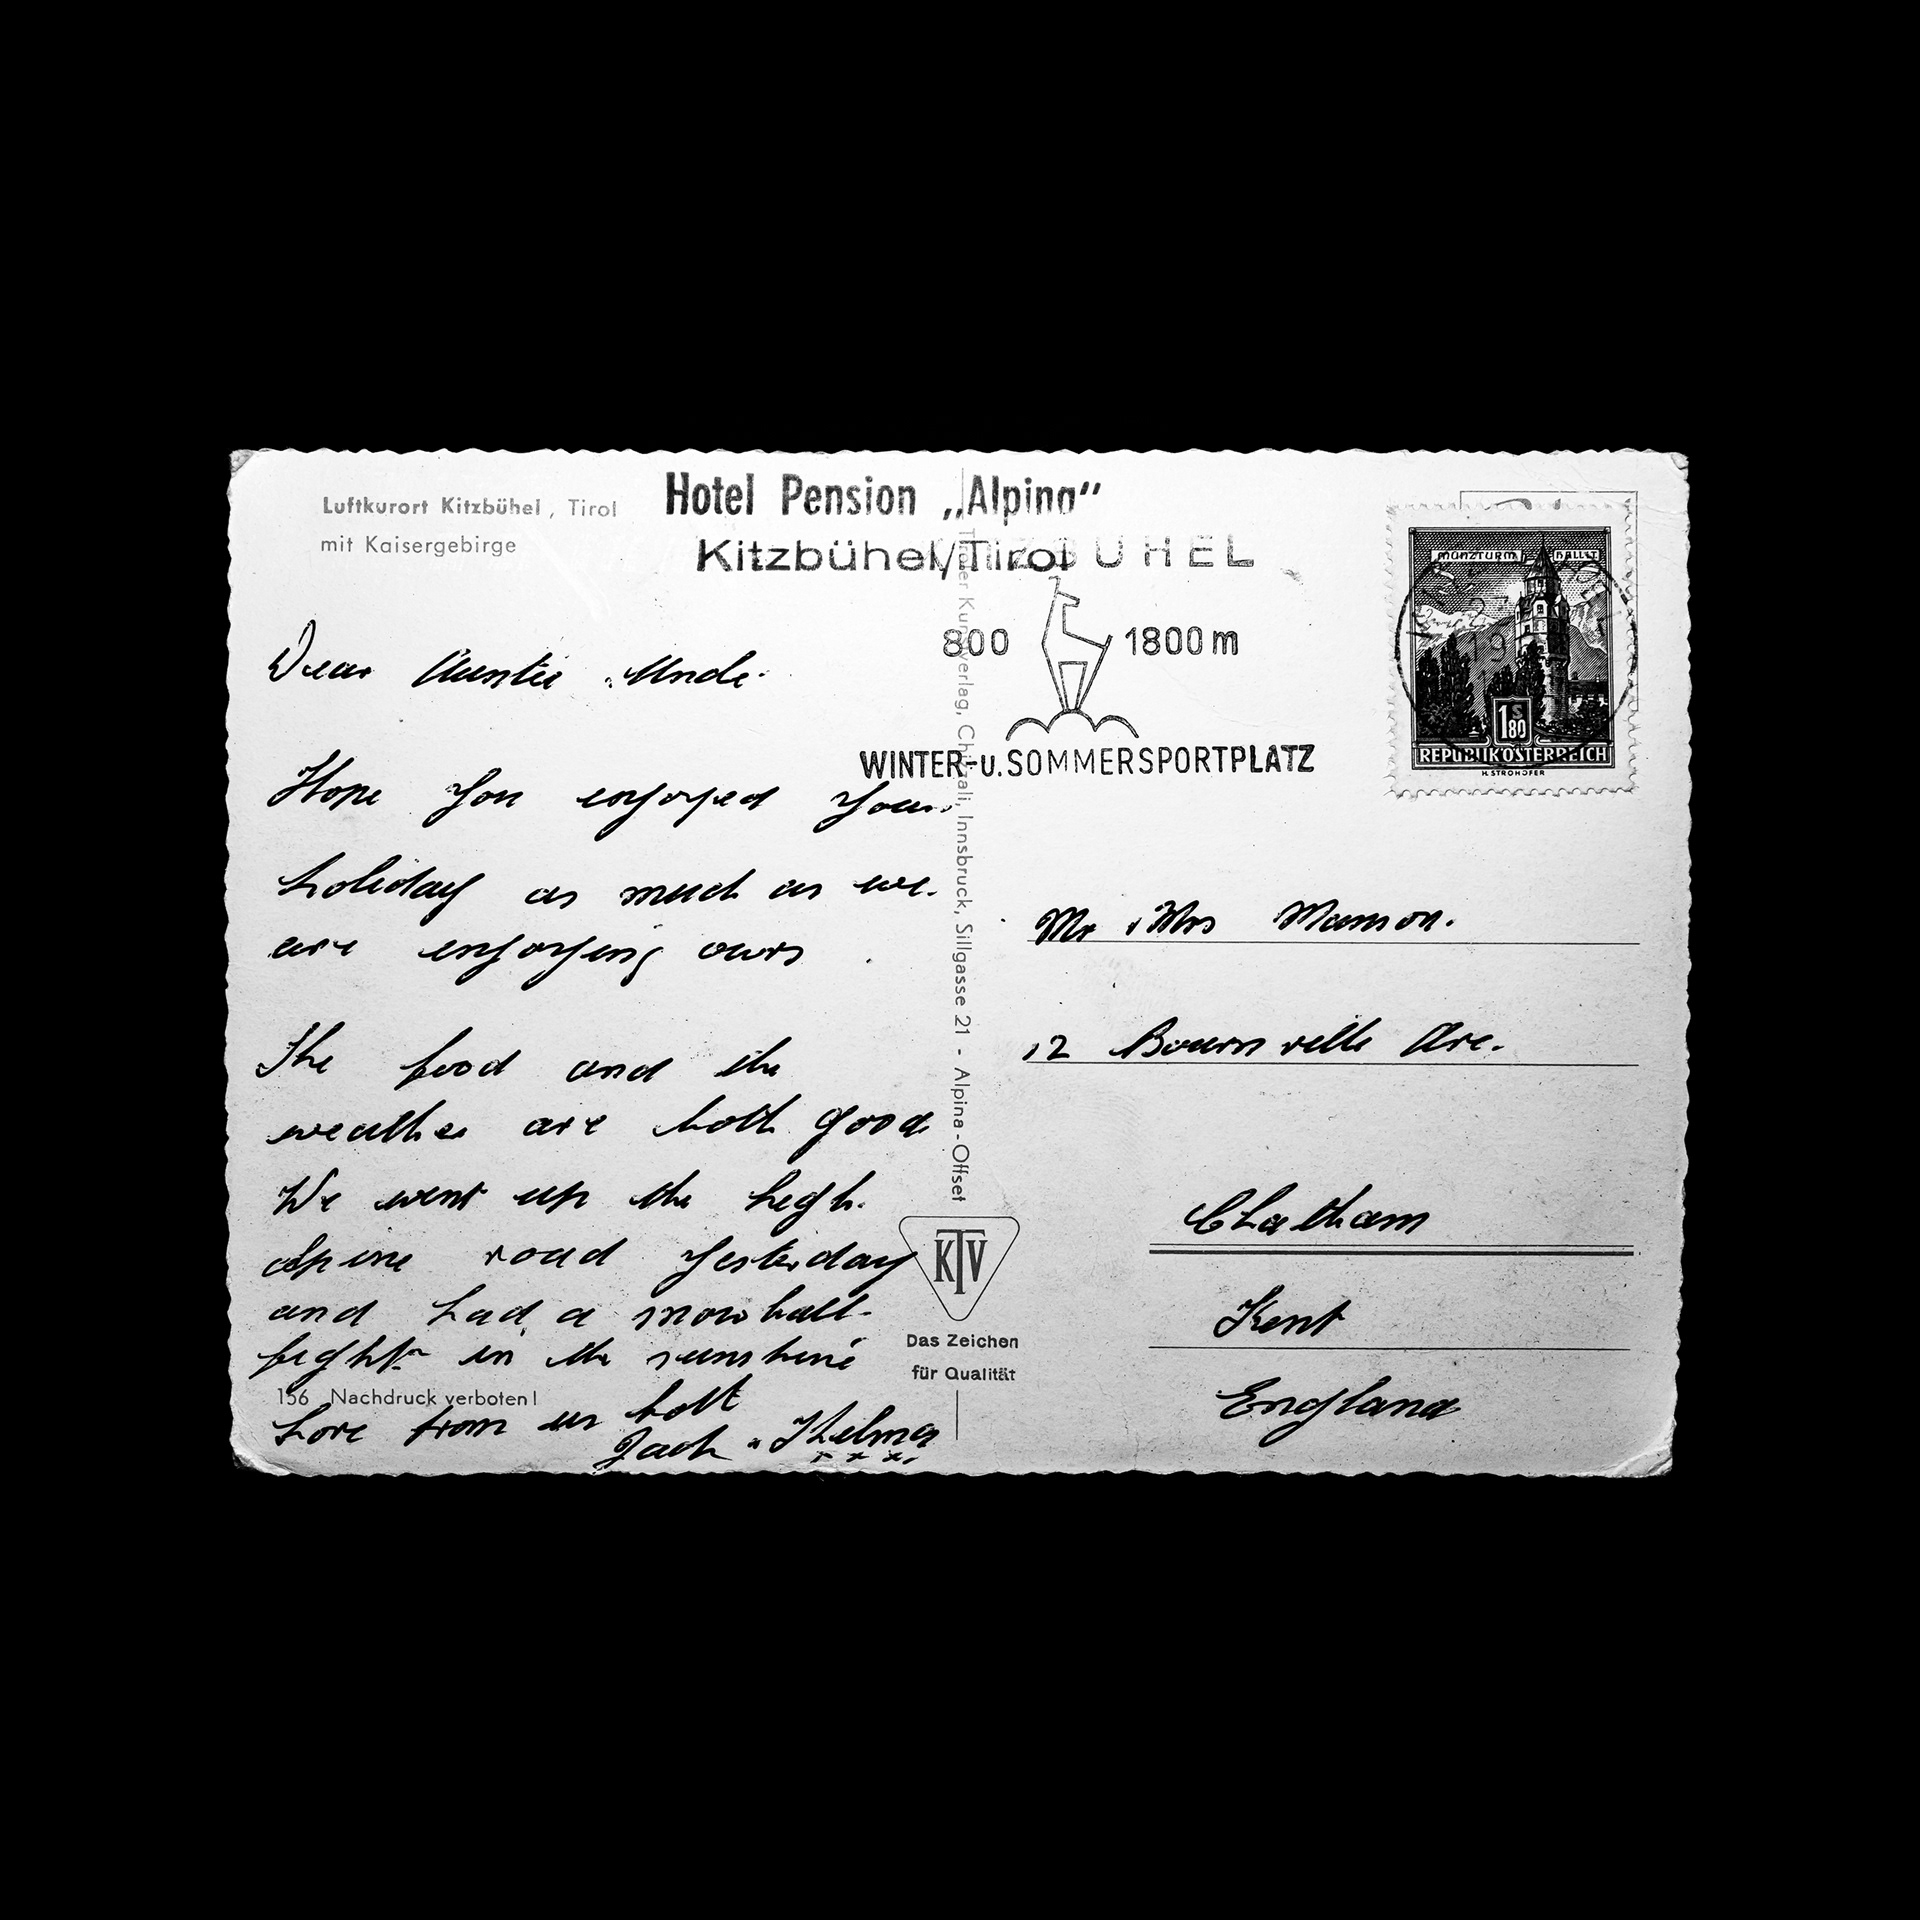 Luftkurort Kitzbühel, Tirol
mit Kaisergebirge
Hotel Pension „Alpina“
Kitzbühel/Tirol
BÜHEL
800 1800 m
WINTER-u. SOMMERSPORTPLATZ
MÜNZTURM HALL I.T.
19
1 S 80
REPUBLIK ÖSTERREICH
H. STROHOFER
Dear Auntie & Uncle.
Hope you enjoyed your
holiday as much as we.
are enjoying ours
The food and the
weather are both good
We went up the high.
alpine road yesterday
and had a snowball-
fight in the sunshine
Love from us both
Jack & Thelma
x x x
156 Nachdruck verboten!
Tiroler Kunstverlag, Chizzali, Innsbruck, Sillgasse 21 - Alpina-Offset
KTV
Das Zeichen
für Qualität
Mr & Mrs Manson.
12 Bournville Ave.
Chatham
Kent
England